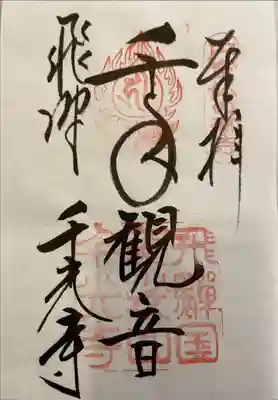 奉拝
千手観音
飛騨
千光寺
飛驒国
千光寺